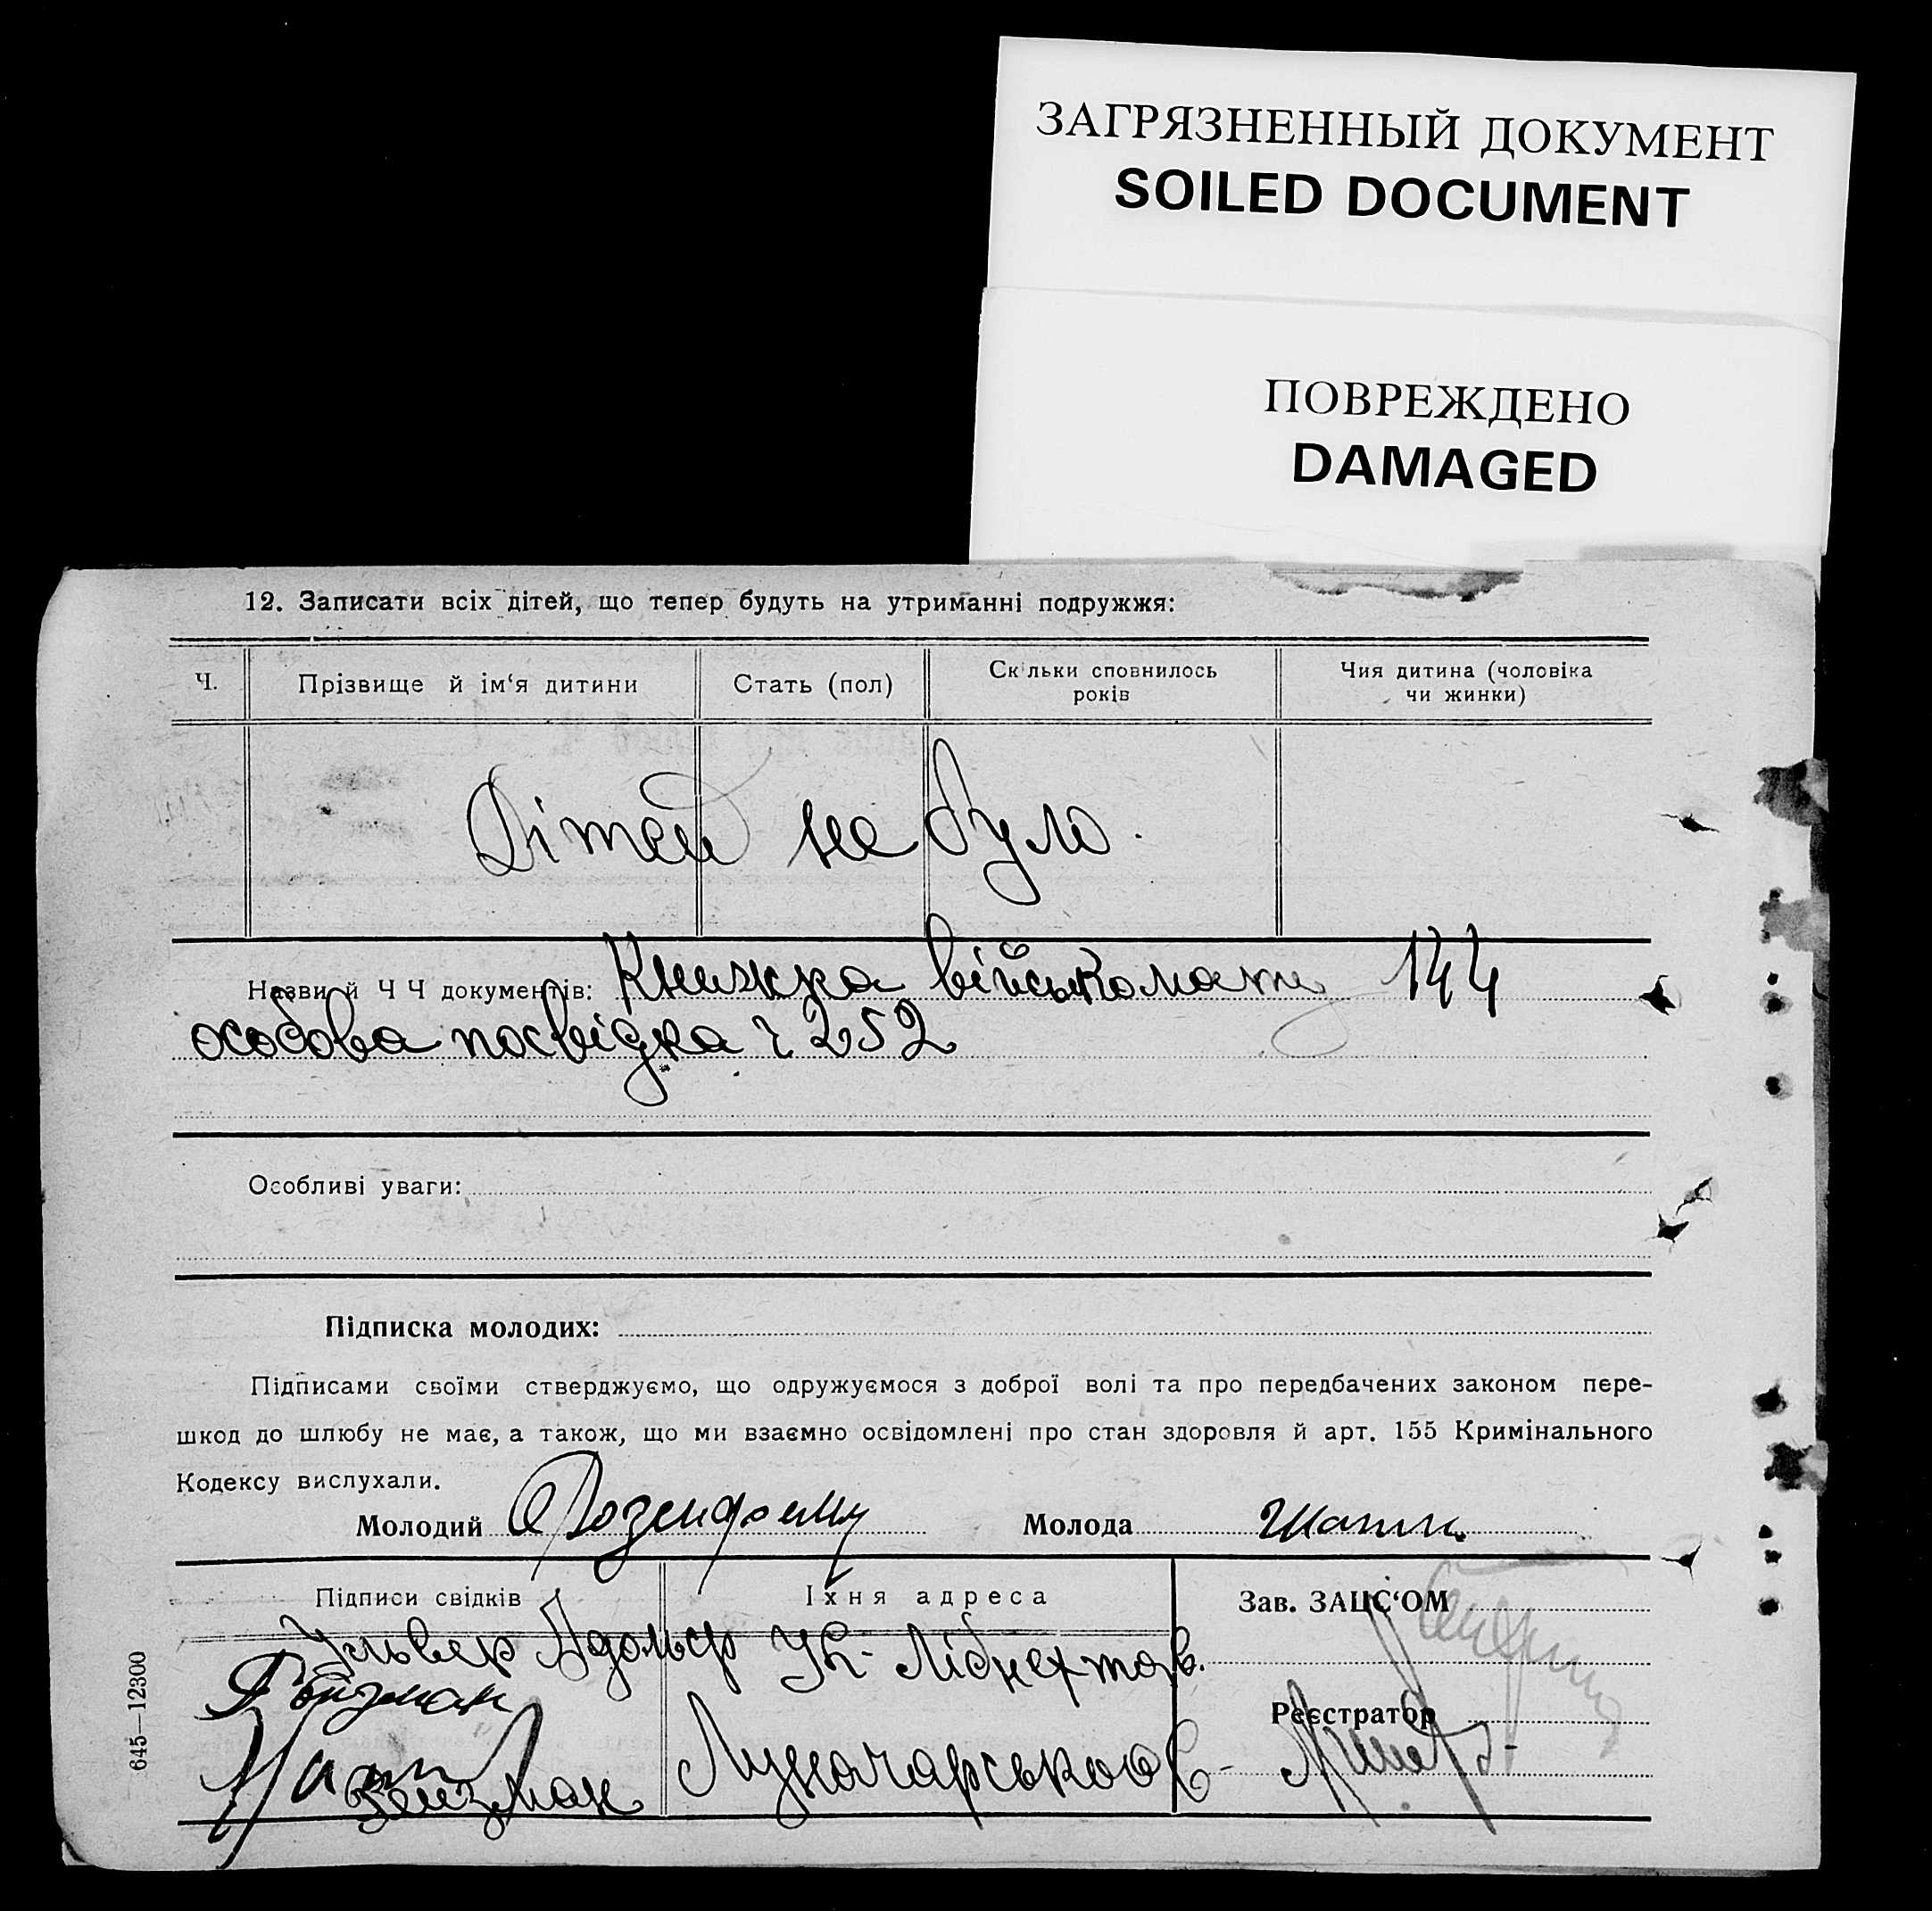 ЗАГРЯЗНЕННЫЙ ДОКУМЕНТ
SOILED DOCUMENT
ПОВРЕЖДЕНО
DAMAGED
12. Записати всіх дітей, що тепер будуть на утриманні подружжя:
Ч. Прізвище й ім‘я дитини Стать (пол) Скільки сповнилось років Чия дитина (чоловіка чи жинки)
Дітей не було.
Назви й Ч Ч документів: Книжка 144
особова посвідка ч 252
Особливі уваги:
Підписка молодих:
Підписами своїми стверджуємо, що одружуємося з доброї волі та про передбачених законом пере-
шкод до шлюбу не має, а також, що ми взаємно освідомлені про стан здоровля й арт. 155 Кримінального
Кодексу вислухали.
Молодий Молода
Підписи свідків Їхня адреса Зав. ЗАЦС‘ОМ
Адольф
Ройзман
Реєстратор
Луначарського
645—12300